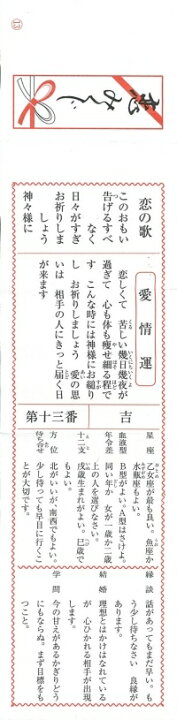 13
恋みくじ
恋の歌
このおもい
告げるすべ
なく
日々がすぎ
お祈りしま
しょう
神々様に
愛情運
恋しくて 苦しい幾日幾夜が
過ぎて 心も体も痩せ細る程で
す こんな時には神様にお縋り
し お祈りしましょう 愛の思
いは 相手の人にきっと届く日
が来ます
第十三番
吉
星座 乙女座が最も良い。魚座か
水瓶座もよい。
血液型 B型がよい。A型はさけよ。
年令差 同い年か 女が一歳か二歳
上の人を選びなさい。
十二支 戌歳生まれがよい。巳歳で
もよい。
方位 北がいいが、南西でもよい。
待ち合せ 少し待っても早目に行くこ
とが大切です。
縁談 話があってもまだ早い。も
う少し待ちなさい 良縁が
あります。
結婚 理想とはかけはなれている
が 心ひかれる相手が出現
します。
学問 今の甘えがあるかぎりどう
にもならぬ。まず目標をも
つこと。